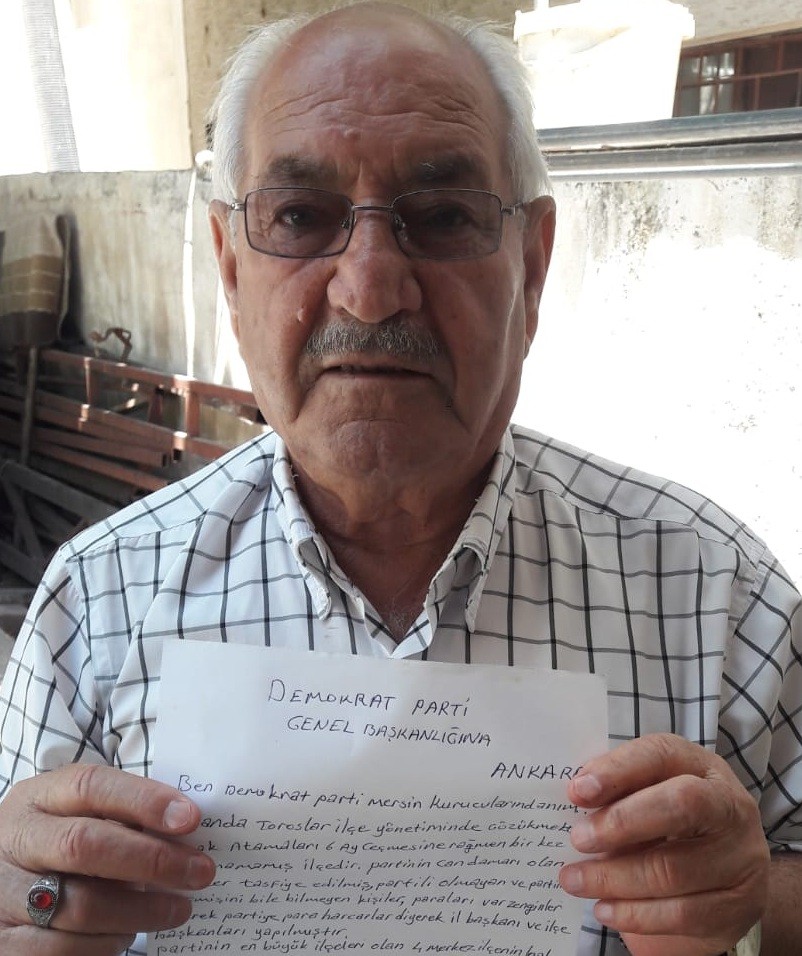 DEMOKRAT PARTİ
GENEL BAŞKANLIĞINA
ANKARA
Ben Demokrat parti mersin Kurucularındanım
anda Toroslar ilçe yönetiminde Gözükmekt
ak Atamaları 6 Ay Geçmesine rağmen bir kec
namamış ilçedir. partinin can damarı olan
ler tasfiye edilmiş, partili olmayan ve partin
çmişini bile bilmeyen kişiler, paraları var zenginler
erek partiye para harcarlar diyerek il başkanı ve ilçe
başkanları yapılmıştır.
partinin en büyük ilçeleri olan 4 merkez ilçenin